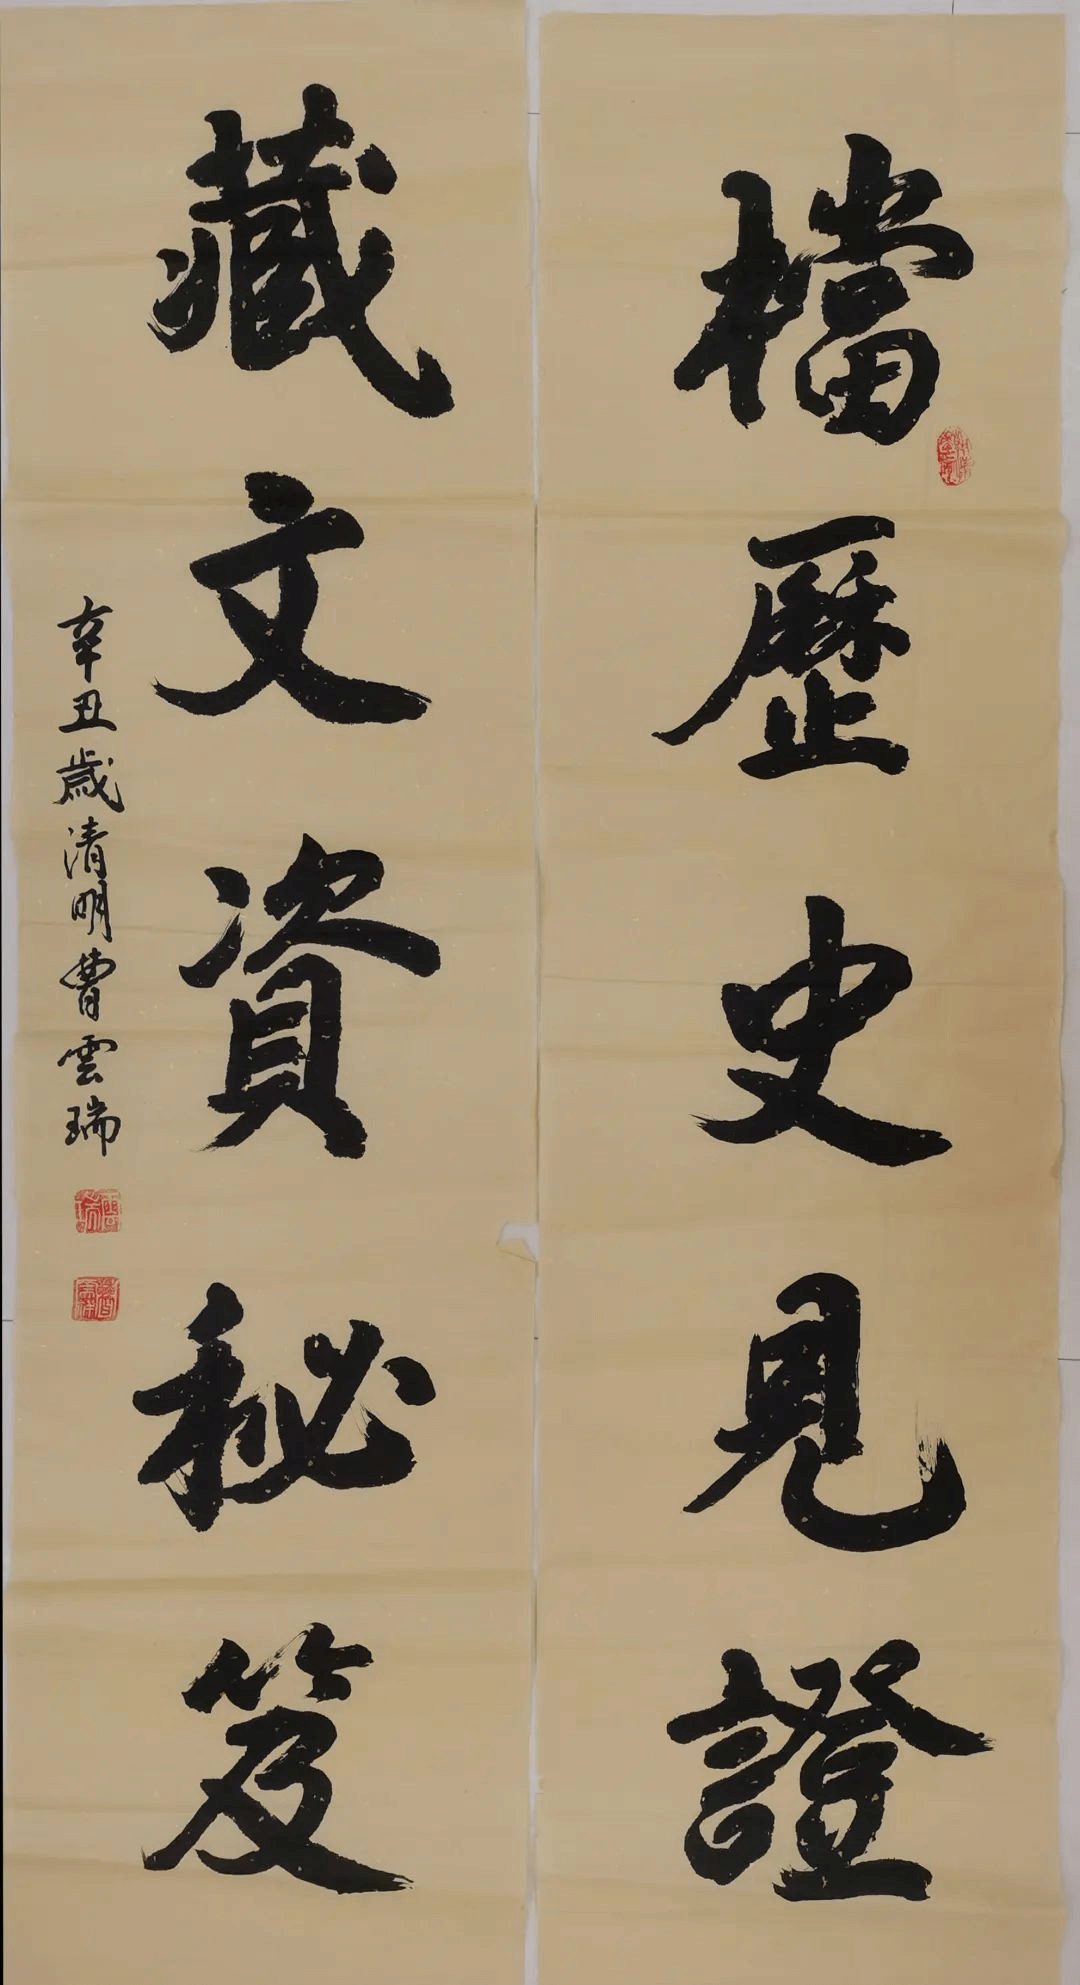 檔歷史見證
藏文資秘笈
辛丑歲清明曹雲瑞